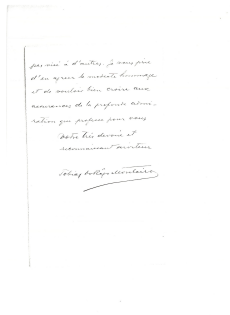 pas visé à d'autres. Je vous prie
d'en agréer le modeste hommage
et de vouloir bien croire aux
assurances de la profonde admi-
ration que professe pour vous
votre très dévoué et
reconnaissant serviteur